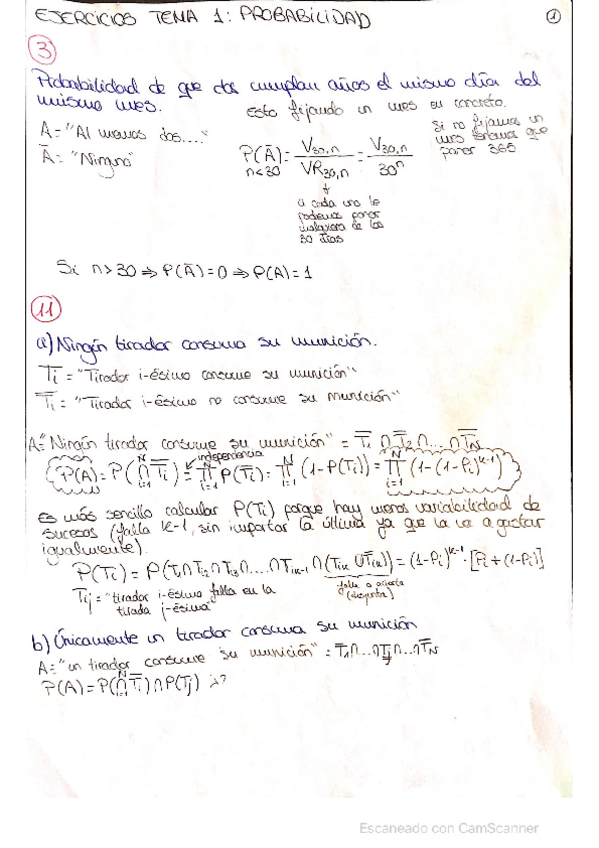 EJERCICIOS TEMA 1: PROBABILIDAD
1
3
Probabilidad de que dos cumplan años el mismo día del
mismo mes.
Esto fijando un mes en concreto.
A = "Al menos dos...."
Ā = "Ninguno"
P(Ā) = V30,n / VR30,n = V30,n / 30^n
n<30
Si no fijamos un
mes tenemos que
poner 365
a cada uno le
podemos poner
cualquiera de los
30 días
Si n>30 ⇒ P(Ā)=0 ⇒ P(A)=1
11
a) Ningún tirador consuma su munición.
Ti = "Tirador i-ésimo consume su munición"
T̄i = "Tirador i-ésimo no consume su munición"
A="Ningún tirador consume su munición" = T̄1 ∩ T̄2 ∩... ∩ T̄N
independencia
P(A) = P(∩ i=1 N T̄i) = ∏ i=1 N P(T̄i) = ∏ i=1 N (1-P(Ti)) = ∏ i=1 N (1-(1-Pi)^k-1)
Es más sencillo calcular P(Ti) porque hay menos variabilidad de
sucesos (falla k-1, sin importar la última ya que la va a gastar
igualmente).
P(Ti) = P(Ti1∩Ti2∩Ti3∩....∩Tik-1∩(Tik∪T̄ik)) = (1-Pi)^k-1 · [Pi+(1-Pi)]
falla o acierta
(disjuntos)
Tij = "tirador i-ésimo falla en la
tirada j-ésima"
b) Únicamente un tirador consuma su munición
A = "un tirador consume su munición" = T̄1∩...∩Tj∩...∩T̄N
P(A) = P(∩ i=1 N T̄i) ∩ P(Tj) ¿?
Escaneado con CamScanner